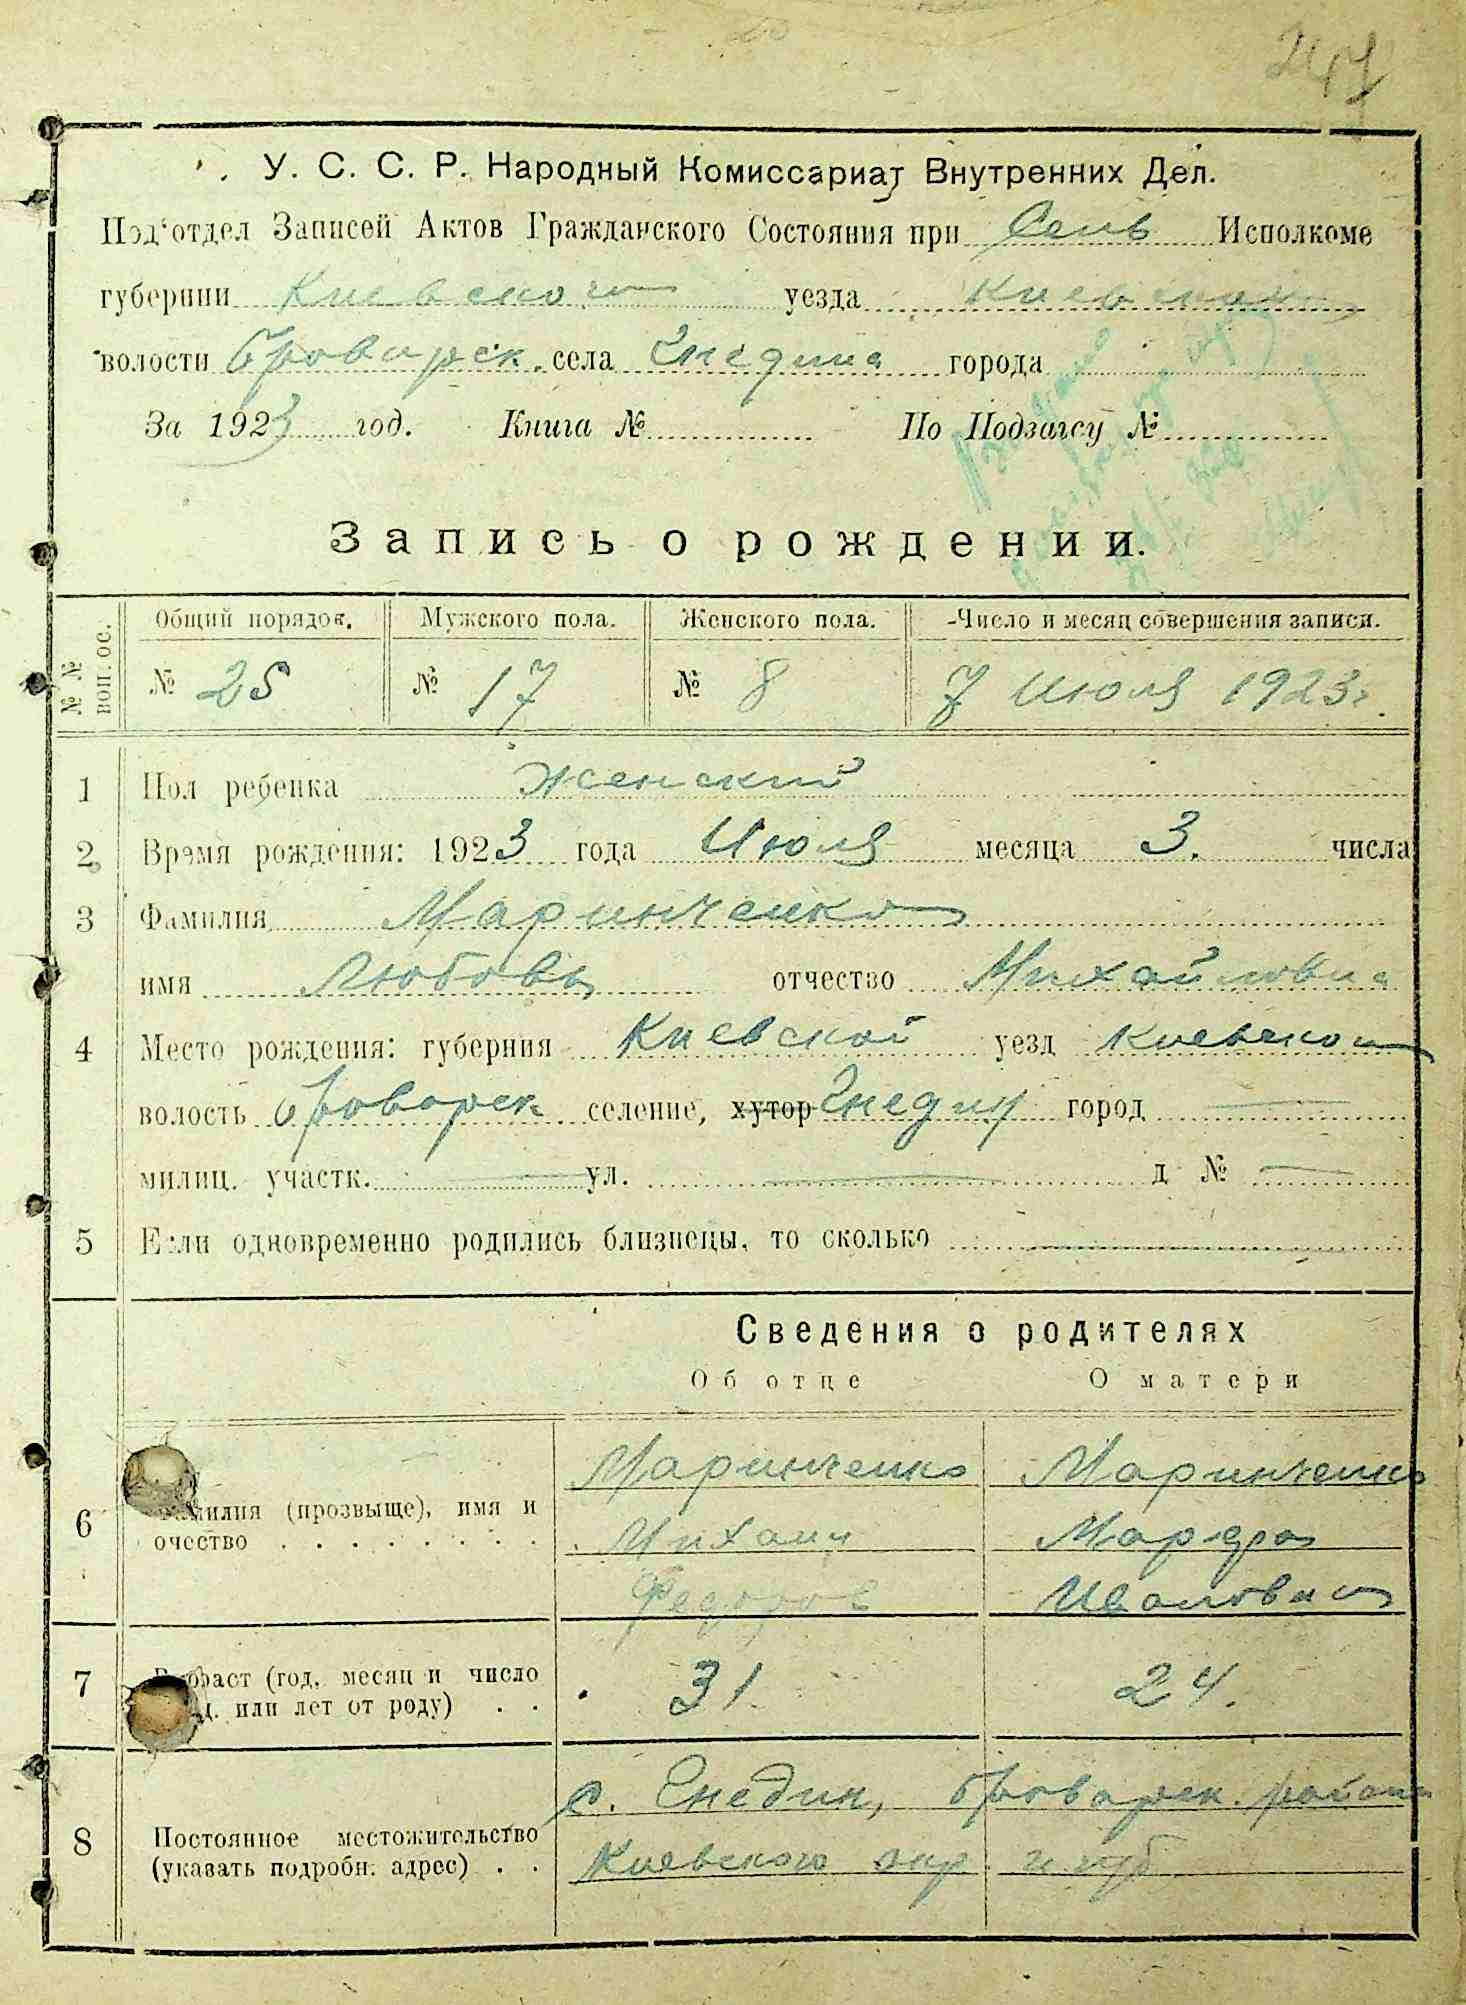 У. С. С. Р. Народный Комиссариат Внутренних Дел.
Под'отдел Записей Актов Гражданского Состояния при Сель Исполкоме
губернии Киевской уезда Киевского
волости Броварск. села Гнедина города
За 1923 год. Книга № По Подзагсу №
Запись о рождении.
№№ воп.ос. Общий порядок. Мужского пола. Женского пола. Число и месяц совершения записи.
№ 25 № 17 № 8 7 Июля 1923 г.
1 Пол ребенка Женский
2 Время рождения: 1923 года Июля месяца 3. числа
3 Фамилия Маринченко
имя Любовь отчество Михайловна
4 Место рождения: губерния Киевской уезд Киевского
волость Броварск селение, хутор Гнедин город —
милиц. участк. — ул. — д № —
5 Если одновременно родились близнецы, то сколько —
Сведения о родителях
Об отце О матери
Маринченко Маринченко
6 Фамилия (прозвыще), имя и
очество Михаил
Федоров Ивановна
7 Возраст (год, месяц и число
или лет от роду) 31. 24.
с. Гнедин, Броварск. района
8 Постоянное местожительство
(указать подробн. адрес) Киевского окр. и губ